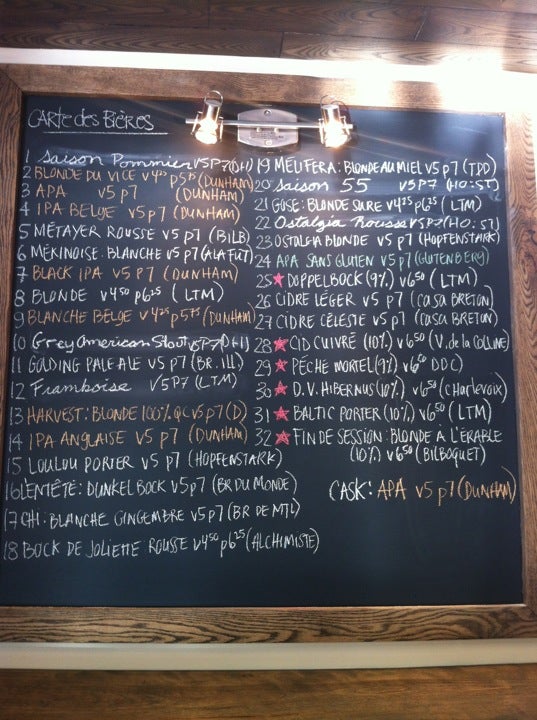 CARTE des BIÈRES
1 Saison Pommier V5P7 (DH)
2 BLONDE DU VICE V4²⁵ p5⁷⁵ (DUNHAM)
3 APA V5 p7 (DUNHAM)
4 IPA BELGE V5 p7 (DUNHAM)
5 MÉTAYER ROUSSE V5 p7 (BILB)
6 MÉKINOISE: BLANCHE V5 p7 (ALAFUT)
7 BLACK IPA V5 P7 (DUNHAM)
8 BLONDE V4⁵⁰ p6²⁵ (LTM)
9 BLANCHE BELGE V4²⁵ p5⁷⁵ (DUNHAM)
10 Grey American Stout V5P7 (DH)
11 GOLDING PALE ALE V5 p7 (BR. Ill)
12 Framboise V5P7 (LTM)
13 HARVEST: BLONDE 100% QC V5 p7 (D)
14 IPA ANGLAISE V5 p7 (DUNHAM)
15 LOULOU PORTER V5 p7 (HOPFENSTARK)
16 L'ENTÊTÉ: DUNKEL BOCK V5p7 (BR DU MONDE)
17 CHI: BLANCHE GINGEMBRE V5 p7 (BR DE MTL)
18 BOCK DE JOLIETTE ROUSSE V4⁵⁰ p6²⁵ (ALCHIMISTE)
19 MELIFERA: BLONDE AU MIEL V5 p7 (TDD)
20 Saison 55 V5P7 (HO:ST)
21 GOSE: BLONDE SURE V4²⁵ p6²⁵ (LTM)
22 Ostalgia Rousse V5P7 (HO:ST)
23 OSTALGIA BLONDE V5 P7 (HOPFENSTARK)
24 APA SANS GLUTEN V5 p7 (GLUTENBERG)
25 ★ DOPPELBOCK (9%) V6⁵⁰ (LTM)
26 CIDRE LÉGER V5 p7 (CASA BRETON)
27 CIDRE CÉLESTE V5 p7 (CASA BRETON)
28 ★ CID CUIVRÉ (10%) V6⁵⁰ (V. de la COLLINE)
29 ★ PÊCHÉ MORTEL (9%) V6⁵⁰ DDC)
30 ★ D.V. HIBERNUS (10%) V6⁵⁰ (CHARLEVOIX)
31 ★ BALTIC PORTER (10%) V6⁵⁰ (LTM)
32 ★ FIN DE SESSION: BLONDE A L'ÉRABLE
(10%) V6⁵⁰ (BILBOQUET)
CASK: APA V5 p7 (DUNHAM)